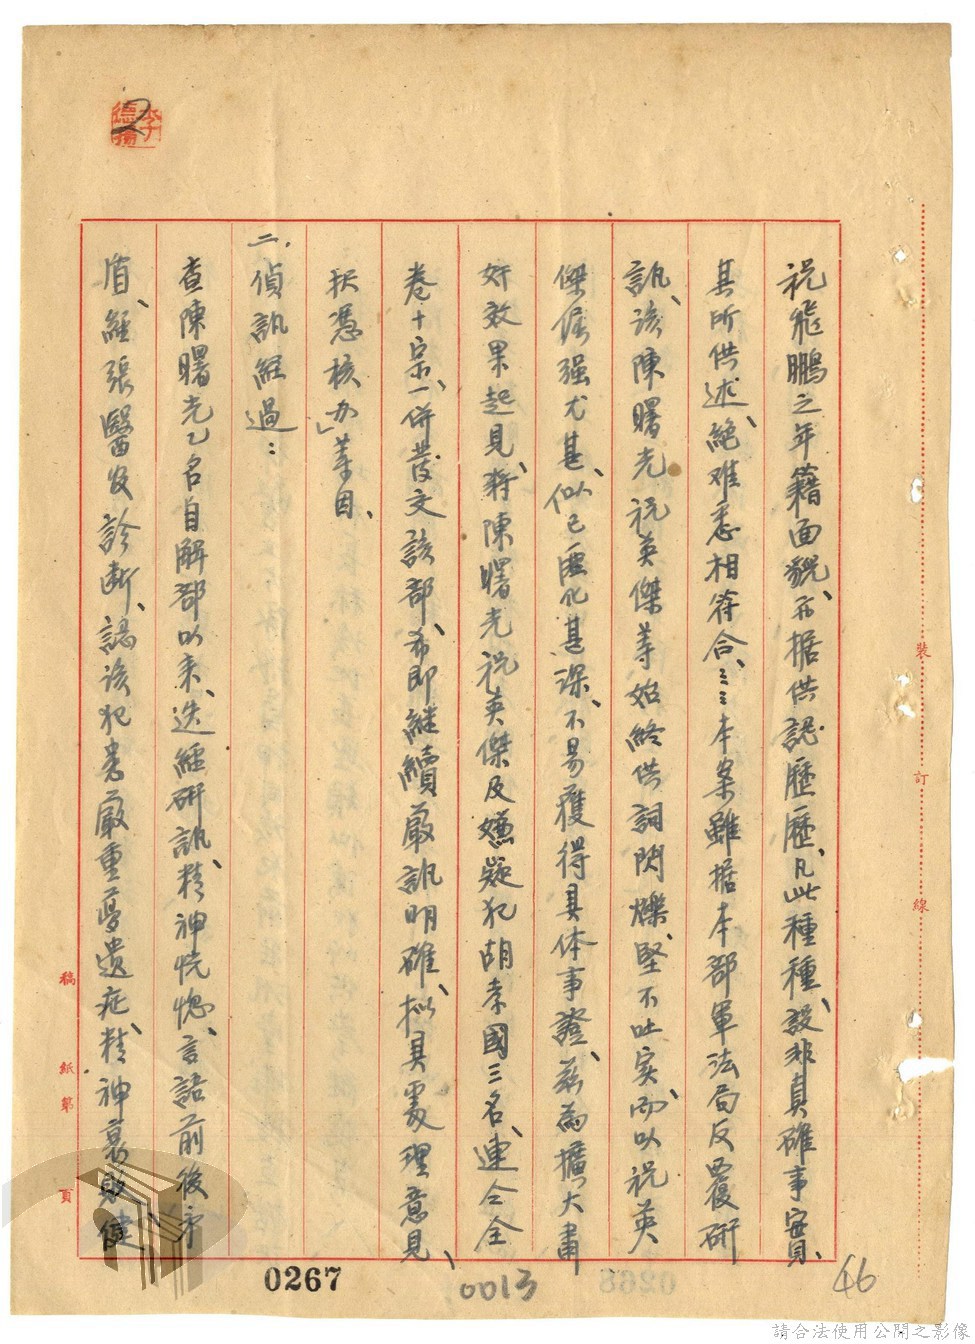 祝飛鵬之年籍面貌、亦据供認歷歷、凡此種種、設非真確事實、
其所供述、絕难悉相符合、…本案雖据本部軍法局反覆研
訊、該陳曙光祝英傑等始終供詞閃爍、堅不吐实、而以祝英
傑倔强尤甚、似已匪化甚深、不易獲得具体事證、茲為擴大肅
奸效果起見、将陳曙光祝英傑及嫌疑犯胡孝國三名、連仝全
卷十宗、一併發交該部、希即繼續嚴訊明確、拟具處理意見、
報憑核办」等因、
二、偵訊經過：
查陳曙光乙名自解部以来、迭經研訊、精神恍惚、言語前後矛
盾、經張醫友診断、認該犯患嚴重夢遺症、精神衰敗、健
裝
訂
線
稿紙第 頁
2
0267
0013
46
請合法使用公開之影像